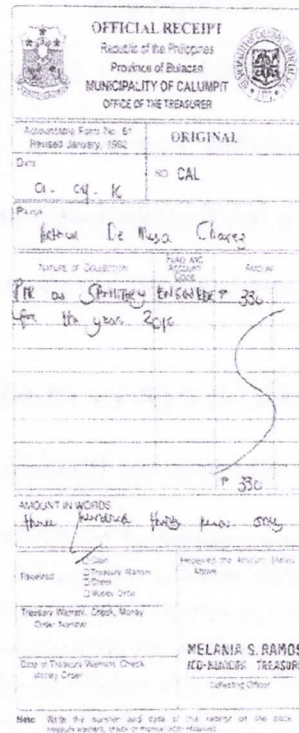 OFFICIAL RECEIPT
Republic of the Philippines
Province of Bulacan
MUNICIPALITY OF CALUMPIT
OFFICE OF THE TREASURER
Accountable Form No. 51
Revised January, 1992
ORIGINAL
Date
NO CAL
Payor
De Mesa Chavez
NATURE OF COLLECTION
FUND AND ACCOUNT CODE
AMOUNT
PTR as SANITARY ENGINEER P 330
for the year 2010
P 330
AMOUNT IN WORDS
three hundred thirty pesos only
Received
Cash
Treasury Warrant
Check
Money Order
Received the Amount Stated Above
Treasury Warrant, Check, Money
Order Number
Date of Treasury Warrant, Check,
Money Order
MELANIA S. RAMOS
TREASURER
Collecting Officer
Note: Write the number and date of this receipt on the back of
treasury warrant, check or money order received.